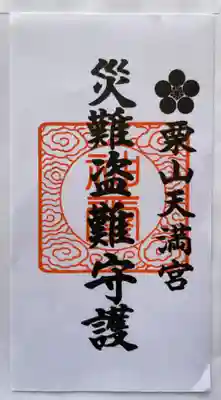 栗山天満宮
災難盗難守護